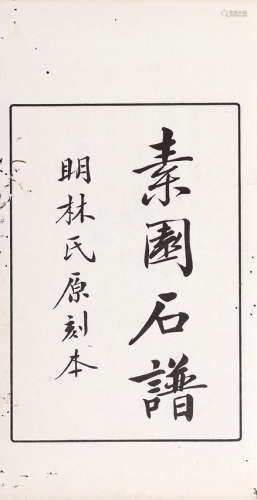 素園石譜
明林氏原刻本